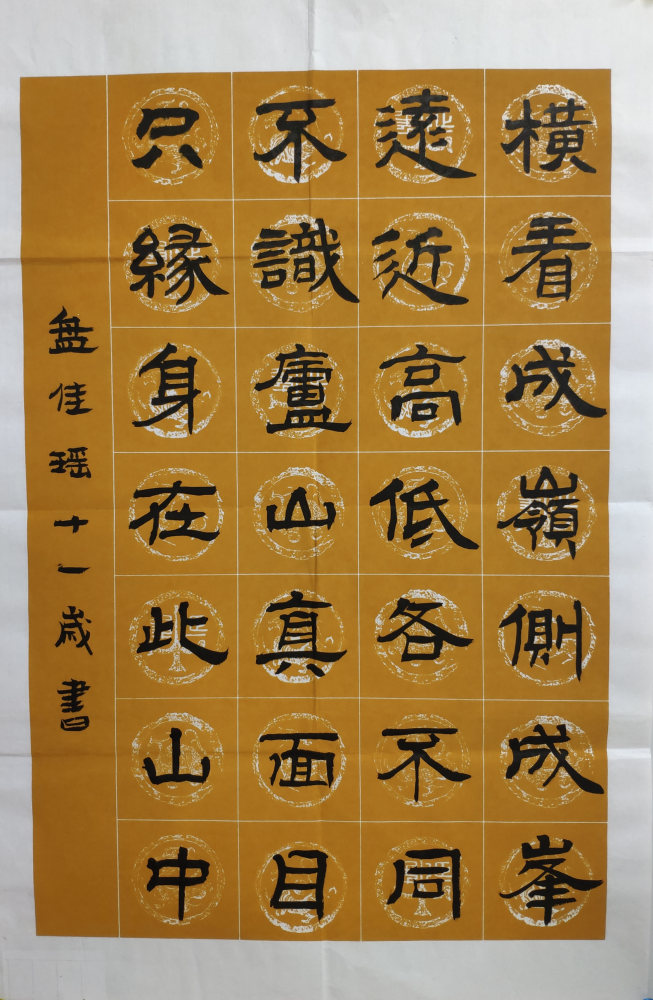 橫看成嶺側成峯
遠近高低各不同
不識廬山真面目
只緣身在此山中
盘佳瑶十一歲書